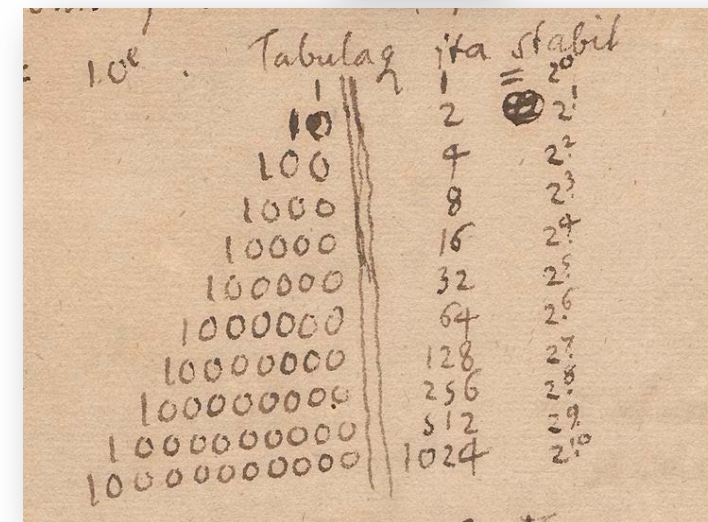 10e . Tabulaq ita stabit
1 1 = 2^0
10 2 2^1
100 4 2^2
1000 8 2^3
10000 16 2^4
100000 32 2^5
1000000 64 2^6
10000000 128 2^7
100000000 256 2^8
1000000000 512 2^9
10000000000 1024 2^10